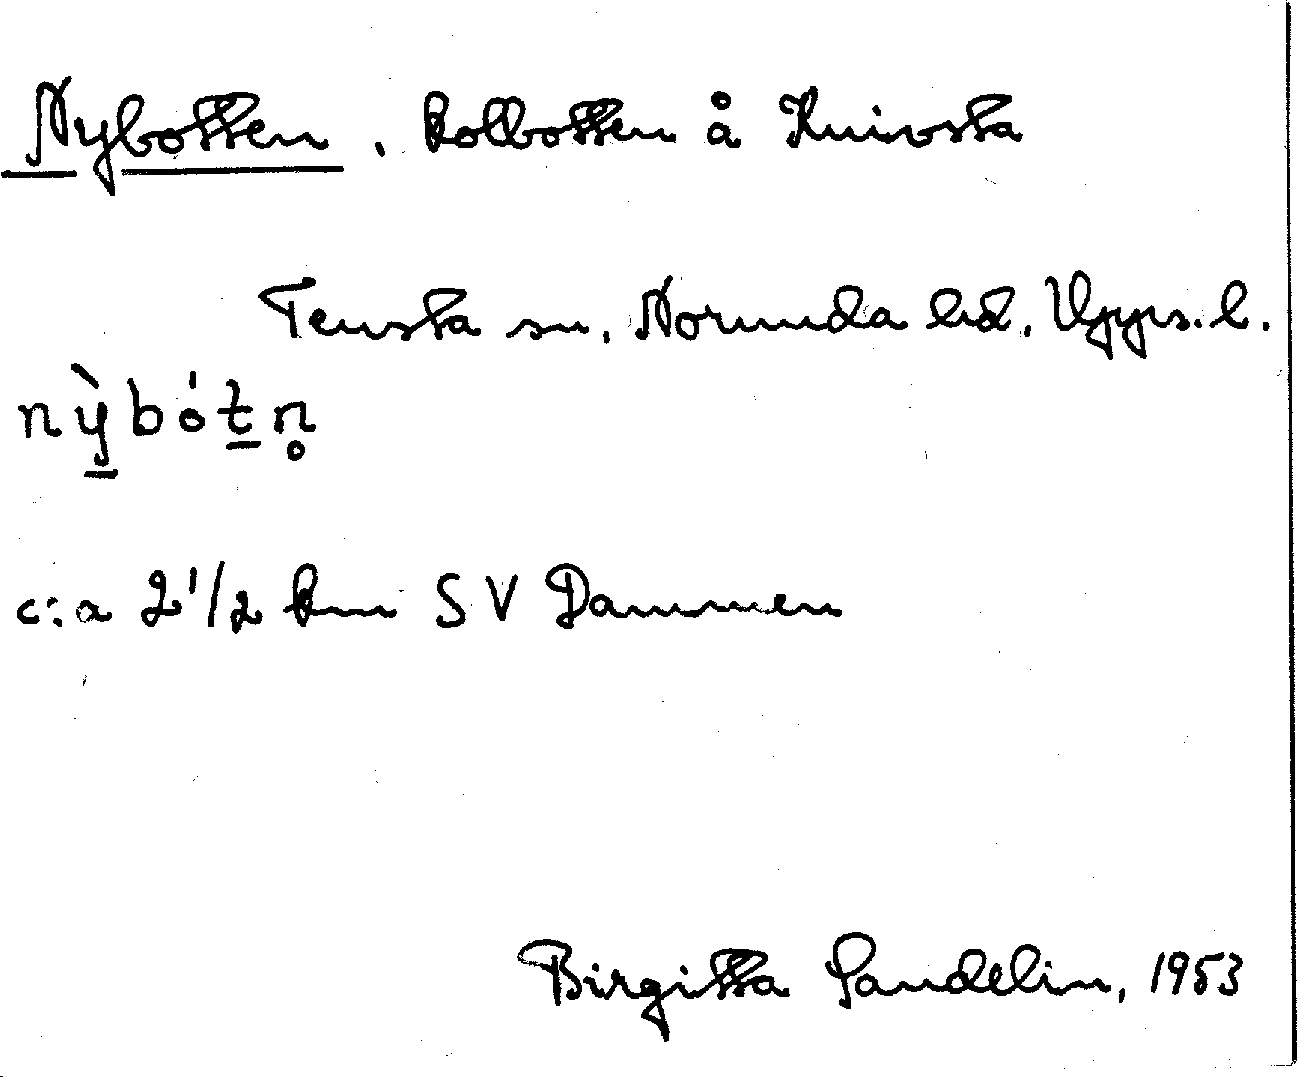 Nybotten, kolbotten å Knivsta
Tensta sn, Norunda hd, Upps. l.
nỳ̠bót̠n̥
c:a 2 1/2 km SV Dammen
Birgitta Sandelin, 1953